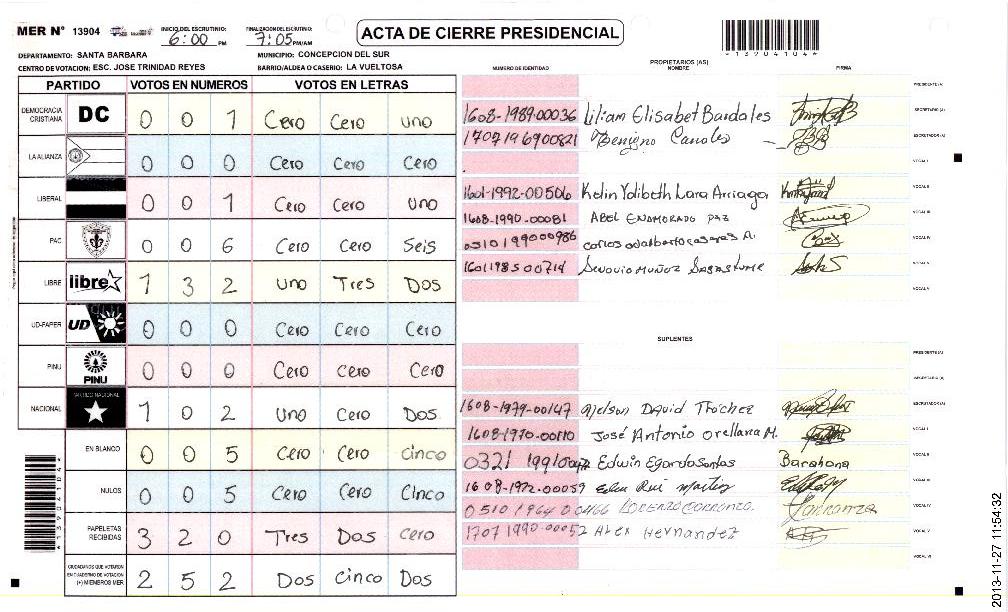 MER N° 13904 INICIO DEL ESCRUTINIO: 6:00 PM FINALIZACION DEL ESCRUTINIO: 7:05 PM/AM
ACTA DE CIERRE PRESIDENCIAL
DEPARTAMENTO: SANTA BARBARA MUNICIPIO: CONCEPCION DEL SUR
CENTRO DE VOTACION: ESC. JOSE TRINIDAD REYES BARRIO/ALDEA O CASERIO: LA VUELTOSA
*13904104*
PARTIDO VOTOS EN NUMEROS VOTOS EN LETRAS
DEMOCRACIA CRISTIANA DC 0 0 1 Cero Cero uno
LA ALIANZA 0 0 0 Cero Cero Cero
LIBERAL 0 0 1 Cero Cero uno
PAC 0 0 6 Cero Cero Seis
LIBRE libre 1 3 2 uno Tres Dos
UD-FAPER UD 0 0 0 Cero Cero Cero
PINU PINU 0 0 0 Cero Cero Cero
NACIONAL PARTIDO NACIONAL 1 0 2 uno Cero Dos
EN BLANCO 0 0 5 Cero Cero cinco
NULOS 0 0 5 Cero Cero Cinco
PAPELETAS RECIBIDAS 3 2 0 Tres Dos cero
CIUDADANOS QUE VOTARON EN CUADERNO DE VOTACION (+) MIEMBROS MER 2 5 2 Dos cinco Dos
PROPIETARIOS (AS)
NUMERO DE IDENTIDAD NOMBRE FIRMA
PRESIDENTE(A)
1608-1989-00036 Liliam Elisabet Bardales SECRETARIO (A)
1707196900821 Benigno Canales ESCRUTADOR (A)
VOCAL I
1601-1992-00506 Kelin Yolibeth Lara Arriaga VOCAL II
1608-1990-00081 ABEL ENAMORADO PAZ VOCAL III
0510199000986 carlos adalberto A. VOCAL IV
1601198500714 MUÑOZ VOCAL V
SUPLENTES
PRESIDENTE (A)
SECRETARIO (A)
1608-1979-00147 Nelson David Trochez ESCRUTADOR (A)
1608-1970-00110 José Antonio orellana M. VOCAL I
0321 Edwin Egardo Santos Barahona VOCAL II
1608-1972-00059 VOCAL III
0510 1964 00466 LORENZO CARRANZA. Carranza VOCAL IV
1707 1990-00052 Alex Hernandez VOCAL V
VOCAL VI
*13904104*
2013-11-27 11:54:32